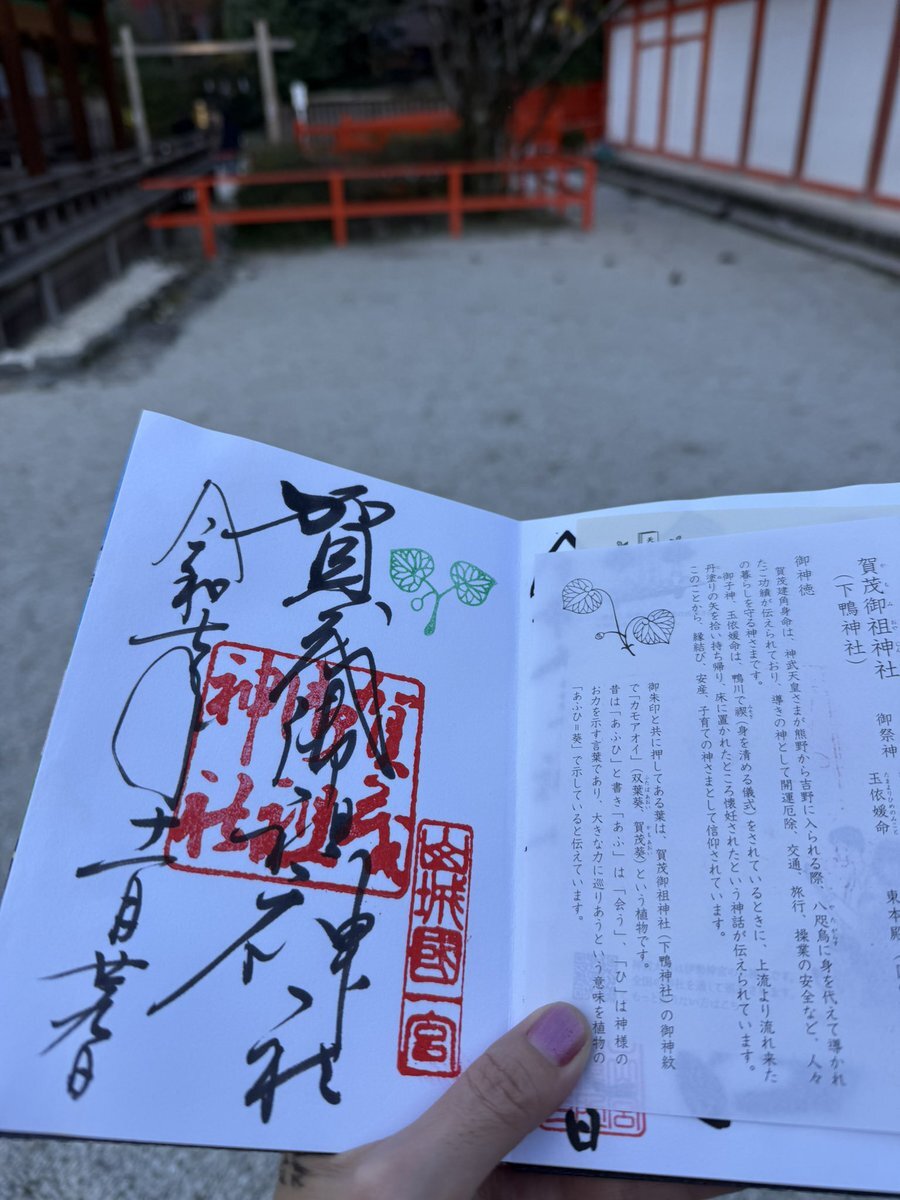 賀茂御祖神社
(下鴨神社)
御祭神 玉依媛命 東本殿
御神徳
賀茂建角身命は、神武天皇さまが熊野から吉野に入られる際、八咫烏に身を代えて導かれ
たご功績が伝えられており、導きの神として開運厄除、交通、旅行、操業の安全など、人々
の暮らしを守る神さまです。
御子神、玉依媛命は、鴨川で禊(身を清める儀式)をされているときに、上流より流れ来た
丹塗りの矢を拾い持ち帰り、床に置かれたところ懐妊されたという神話が伝えられています。
このことから、縁結び、安産、子育ての神さまとして信仰されています。
御朱印と共に押してある葉は、賀茂御祖神社(下鴨神社)の御神紋
で「カモアオイ」(双葉葵、賀茂葵)という植物です。
昔は「あふひ」と書き「あふ」は「会う」、「ひ」は神様の
お力を示す言葉であり、大きな力に巡りあうという意味を植物の
「あふひ=葵」で示していると伝えています。
山城國一宮
賀茂御祖神社
賀茂御祖神社
令和七年十一月
日